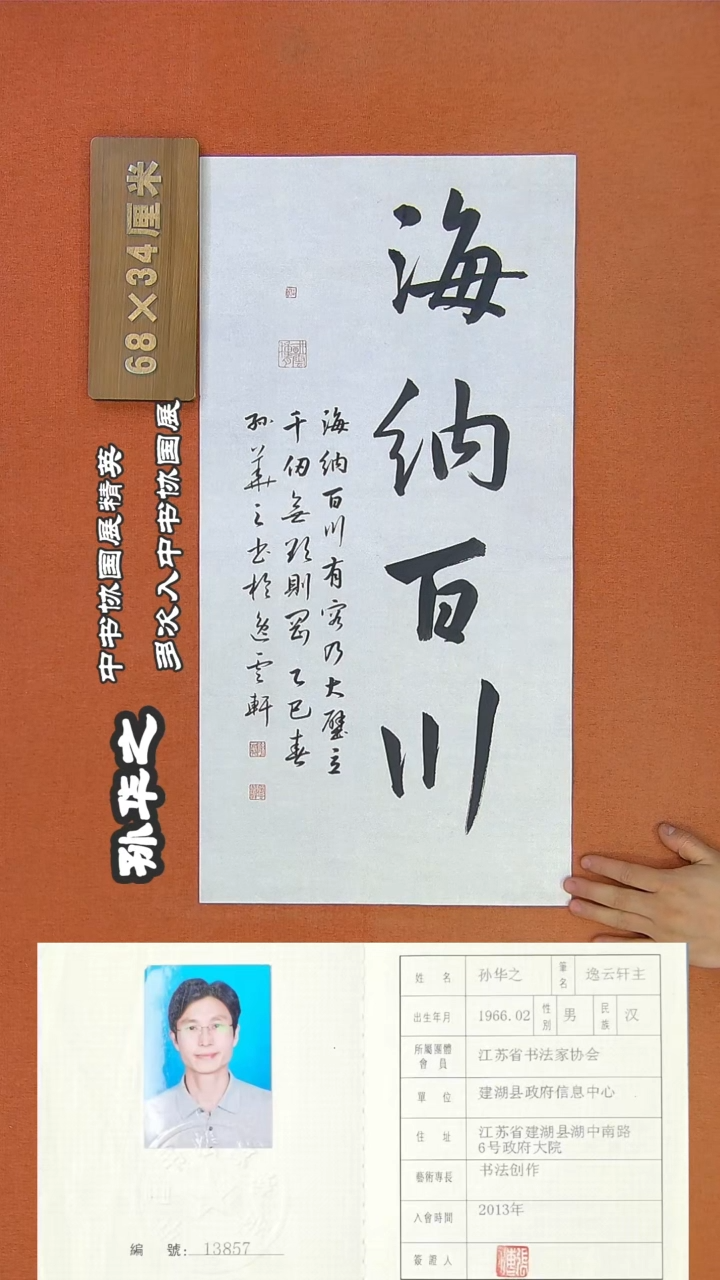 68×34厘米
海纳百川
海纳百川有容乃大壁立
千仞無欲則罡 乙巳春
孙華之书於逸云軒
多次入中书协国展
中书协国展精英
孙华之
姓 名 孙华之 筆名 逸云轩主
出生年月 1966.02 性别 男 民族 汉
所屬團體會員 江苏省书法家协会
單 位 建湖县政府信息中心
住 址 江苏省建湖县湖中南路
6号政府大院
藝術專長 书法创作
入會時間 2013年
簽證人
編 號: 13857